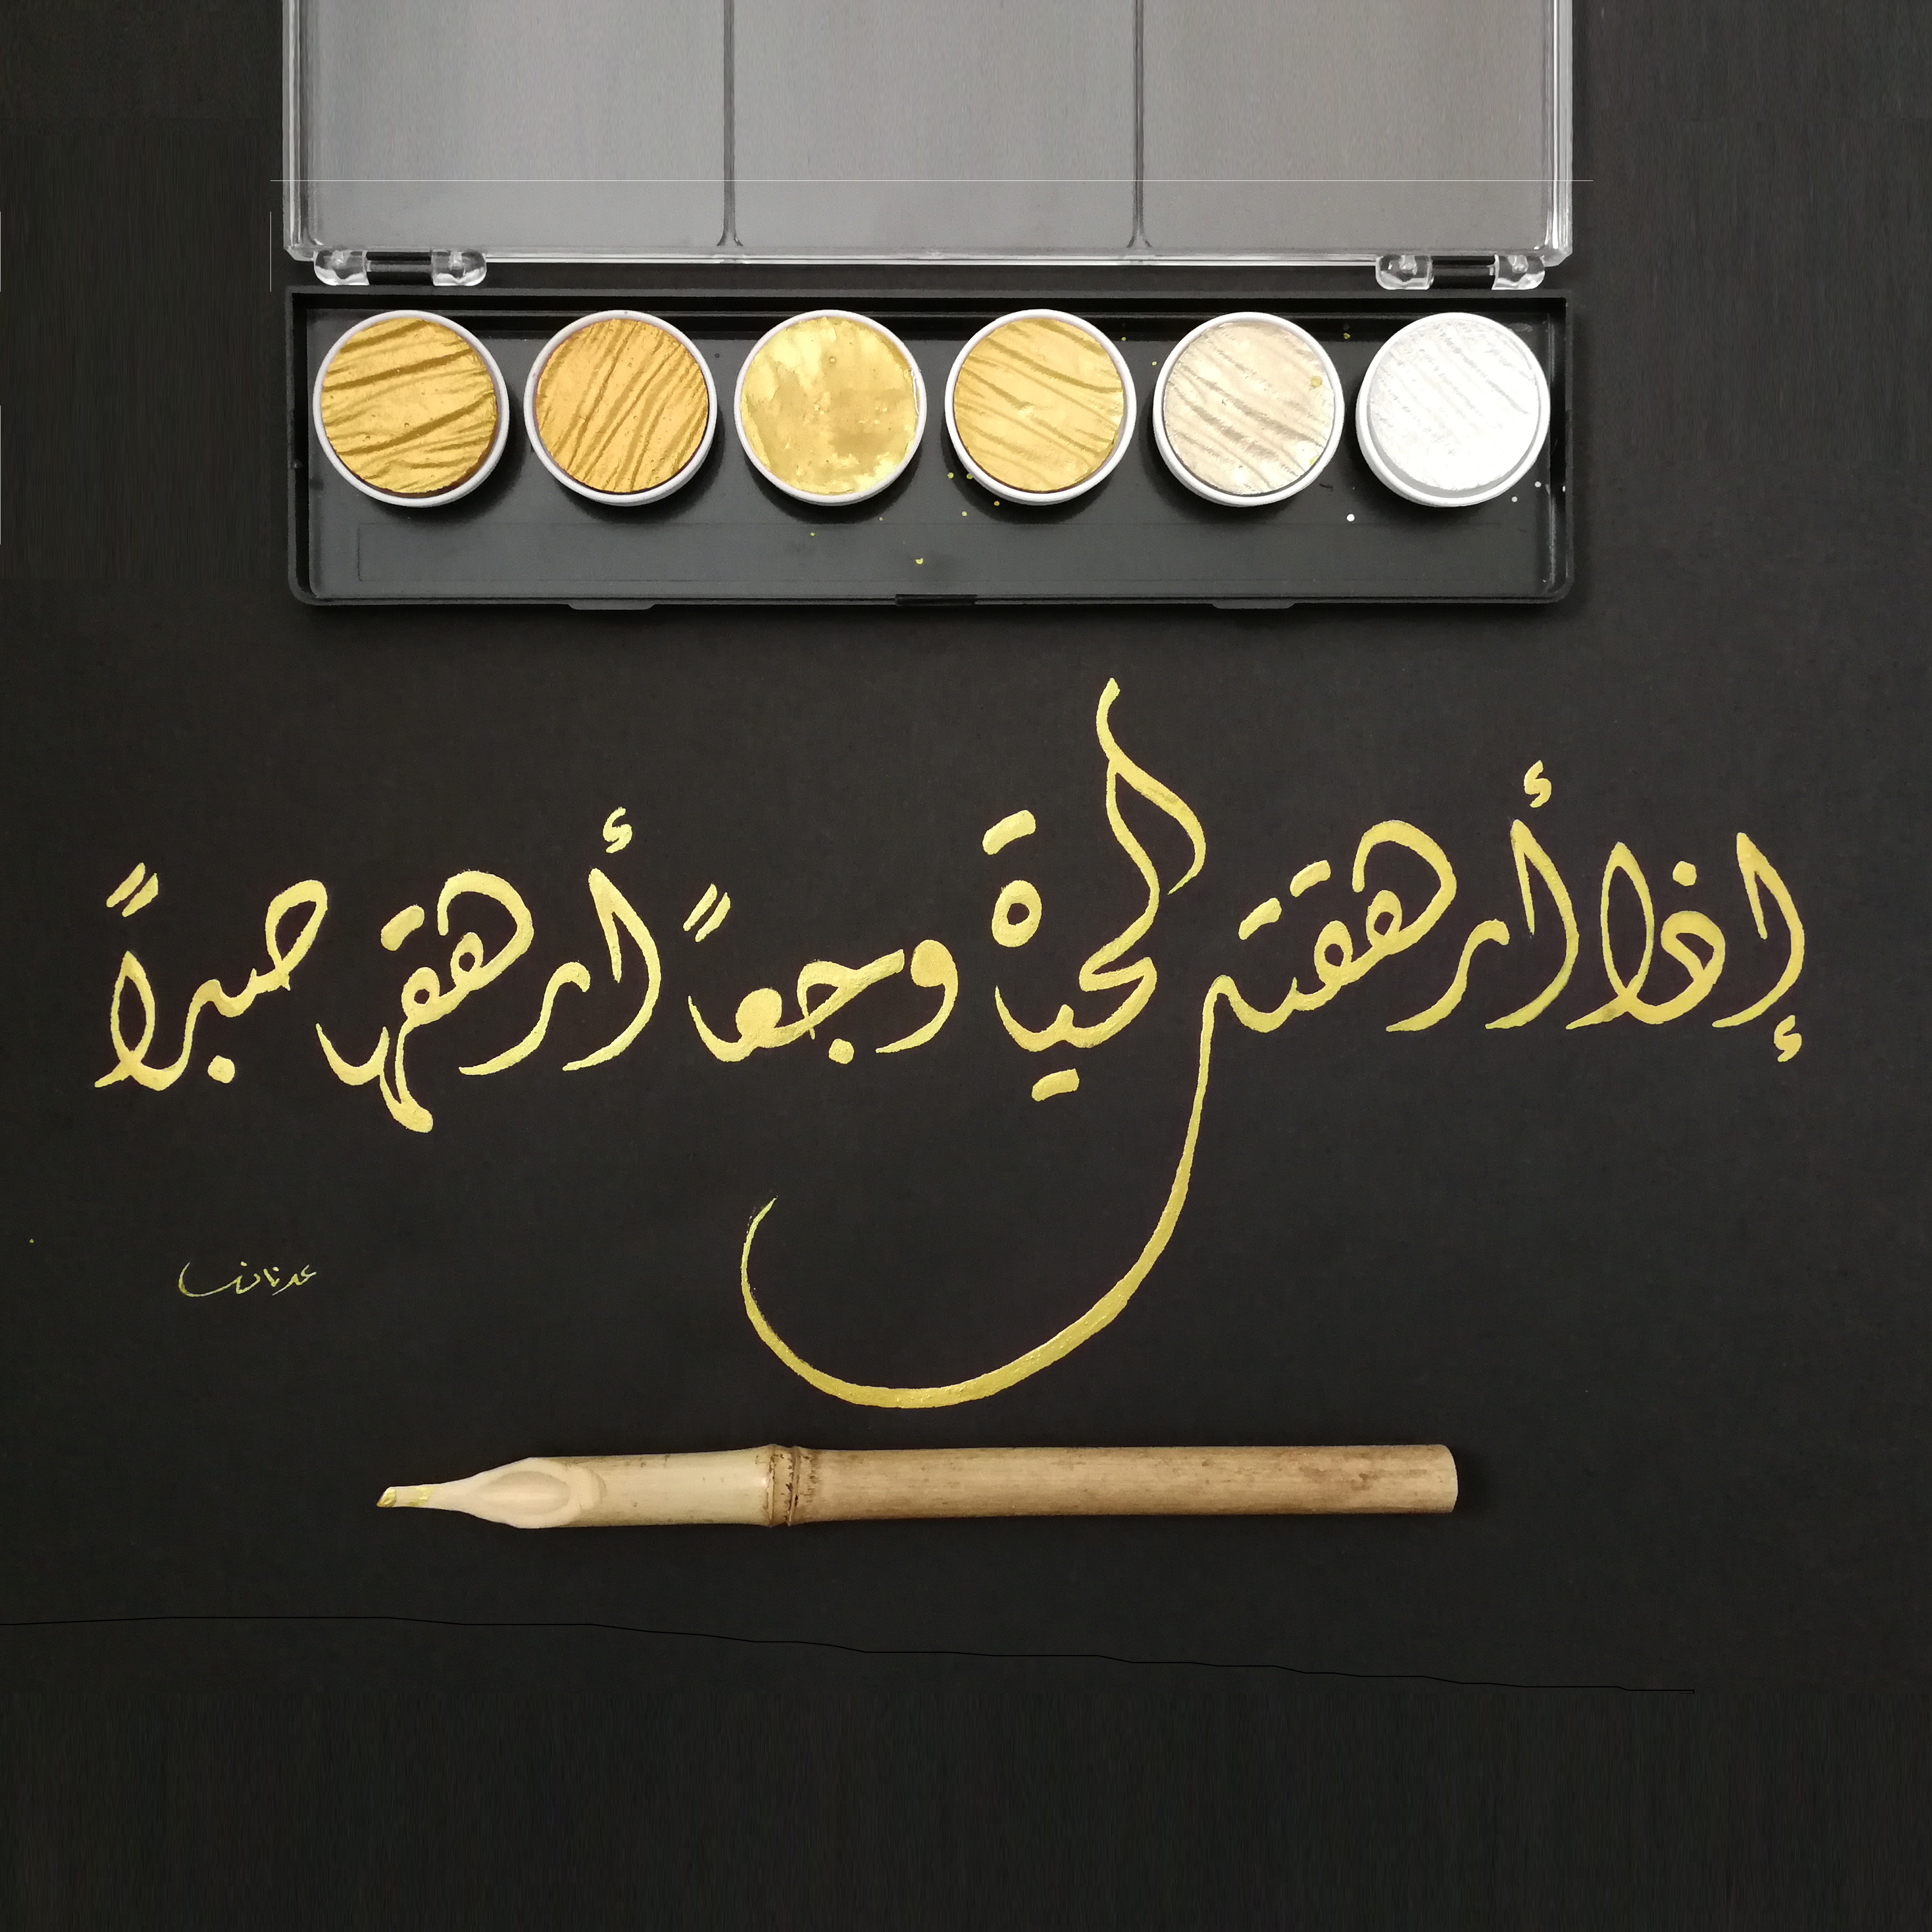 إذا أرهقتك الحياة وجعاً أرهقها صبراً
عدنان